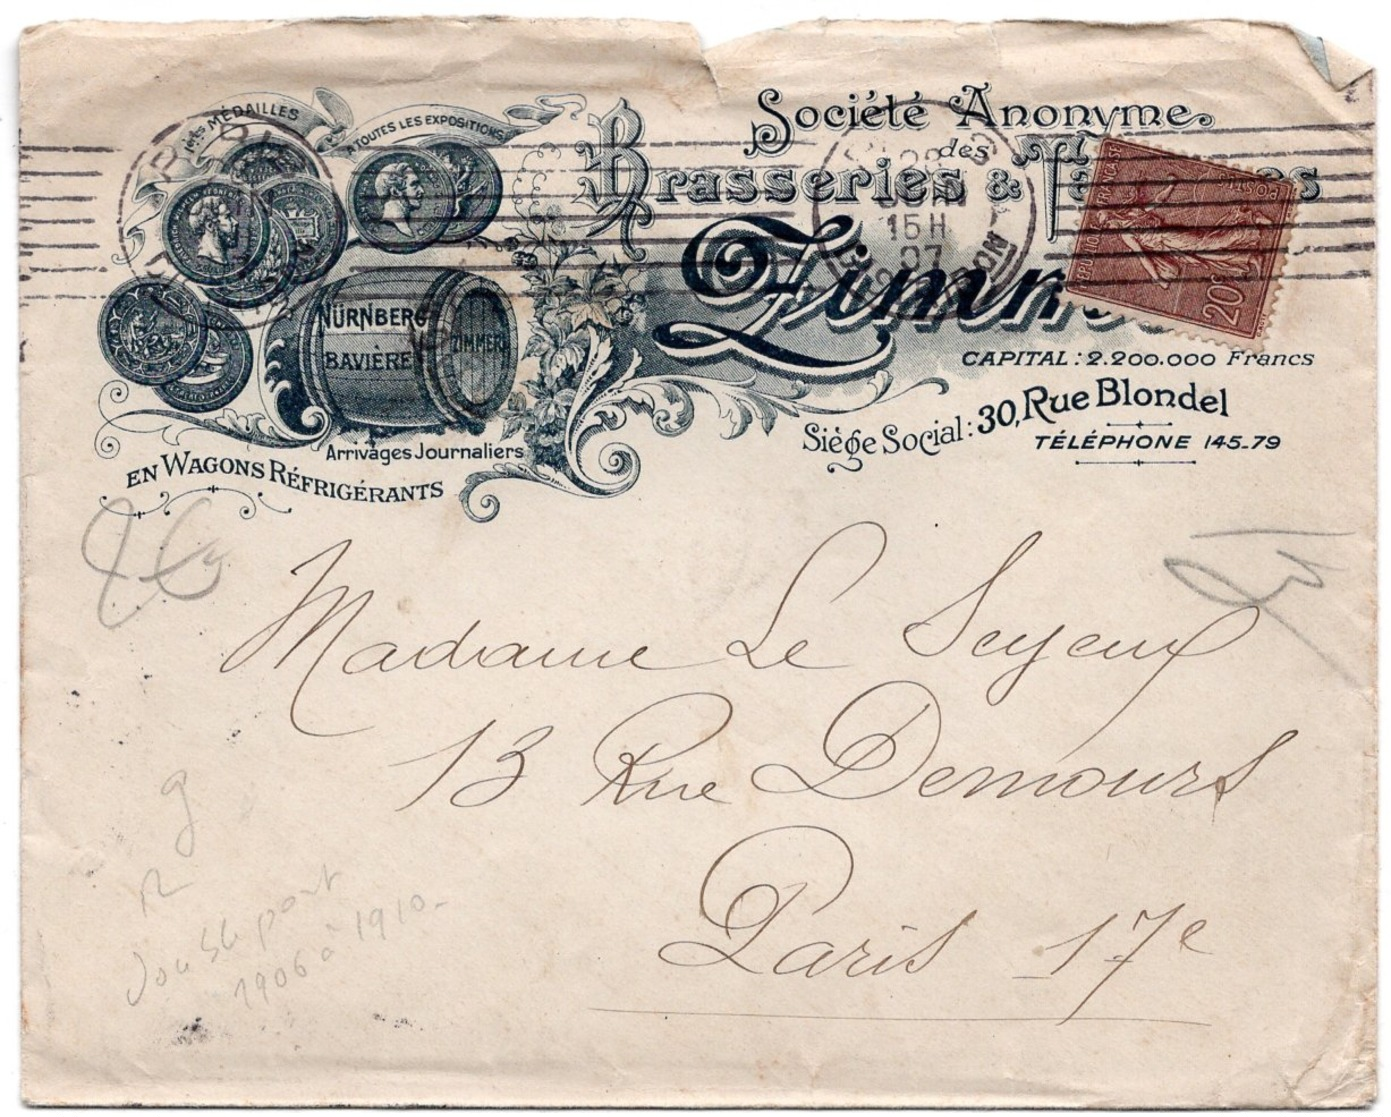 1ères MÉDAILLES
À TOUTES LES EXPOSITIONS
Société Anonyme
des
Brasseries &
NÜRNBERG
BAVIÈRE
ZIMMER
CAPITAL : 2.200.000 Francs
Siège Social : 30, Rue Blondel
TÉLÉPHONE 145-79
Arrivages Journaliers
EN WAGONS RÉFRIGÉRANTS
15 H
07
POSTES
20c
Madame Le Seyeux
13 Rue Demours
Paris 17e
1906 à 1910